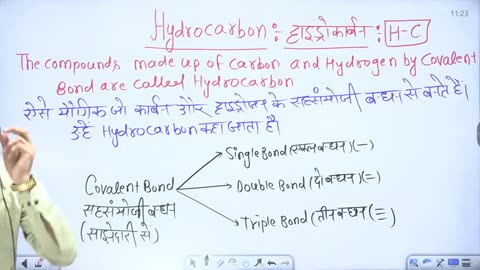 11:23
Hydrocarbon :- हाइड्रोकार्बन : H-C
The compounds made up of Carbon and Hydrogen by Covalent
Bond are called Hydrocarbon
ऐसे यौगिक जो कार्बन और हाइड्रोजन के सहसंयोजी बन्धन से बनते हैं।
उन्हे Hydrocarbon कहा जाता है।
Single Bond (एकल बन्धन) (−)
Covalent Bond
Double Bond (दो बन्धन) (=)
सहसंयोजी बन्धन
Triple Bond (तीन बन्धन) (≡)
(साझेदारी से)